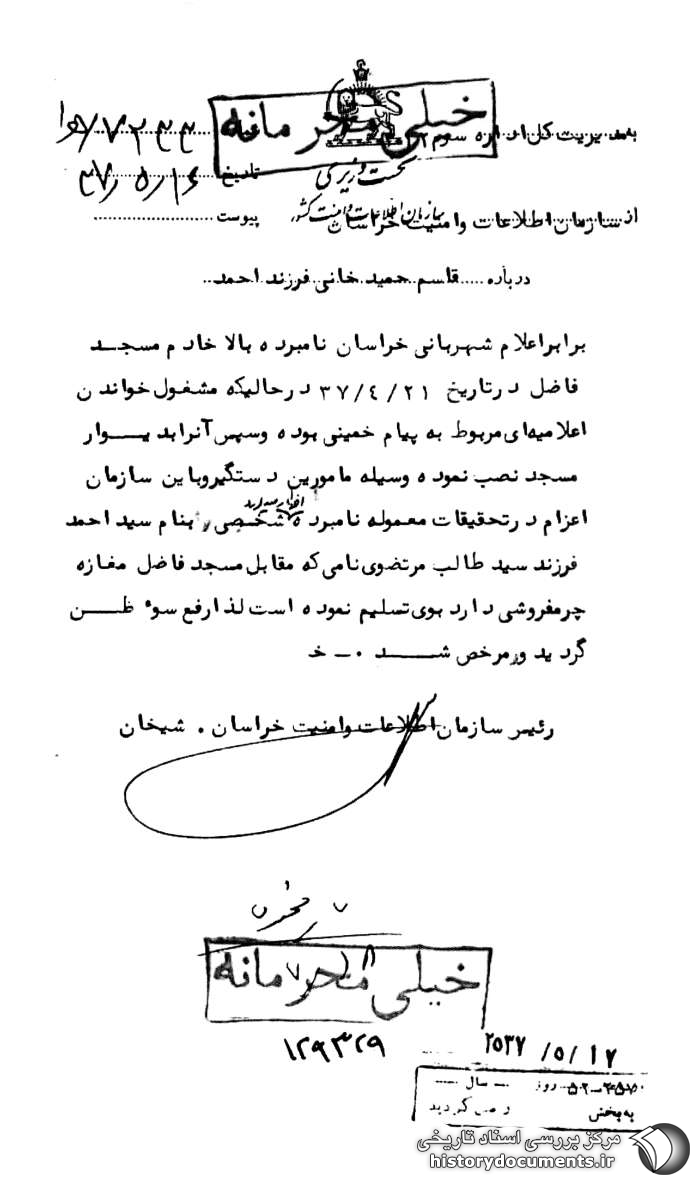 خیلی محرمانه
به مدیریت کل اداره سوم ۳۱۲
شماره ۹/۷۲۳۳/ﻫ۱
نخست وزیری
تاریخ ۳۷/۵/۱۶
سازمان اطلاعات و امنیت کشور
از سازمان اطلاعات وامنیت خراسان
پیوست
درباره قاسم حمیدخانی فرزند احمد
برابراعلام شهربانی خراسان نامبرده بالا خادم مسجد
فاضل درتاریخ ۳۷/٤/۲۱ درحالیکه مشغول خواندن
اعلامیه‌ای مربوط به پیام خمینی بوده وسپس آنرابدیوار
مسجد نصب نموده وسیله مامورین دستگیروباین سازمان
اعزام درتحقیقات معموله نامبرده اظهار میدارد شخصی بنام سیداحمد
فرزند سید طالب مرتضوی نامی که مقابل مسجد فاضل مغازه
چرمفروشی دارد بوی تسلیم نموده است لذارفع سوء ظن
گردید ومرخص شد ۰ـ خ
رئیس سازمان اطلاعات وامنیت خراسان . شیخان
خیلی محرمانه
۱۲۹۳۲۹
۲۵۳۷/۵/۱۷
روز سال
به بخش
مرکز بررسی اسناد تاریخی
historydocuments.ir